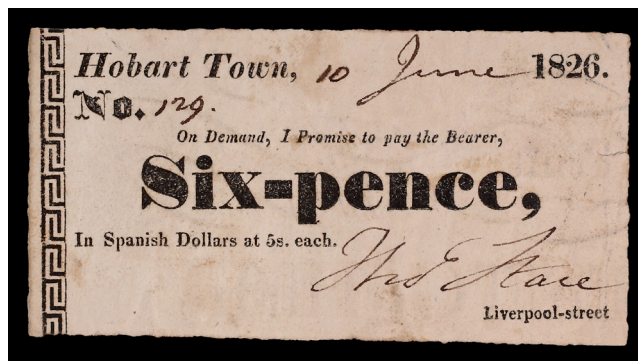 Hobart Town, 10 June 1826.
No. 129.
On Demand, I Promise to pay the Bearer,
Six-pence,
In Spanish Dollars at 5s. each.
Thos E Stace
Liverpool-street